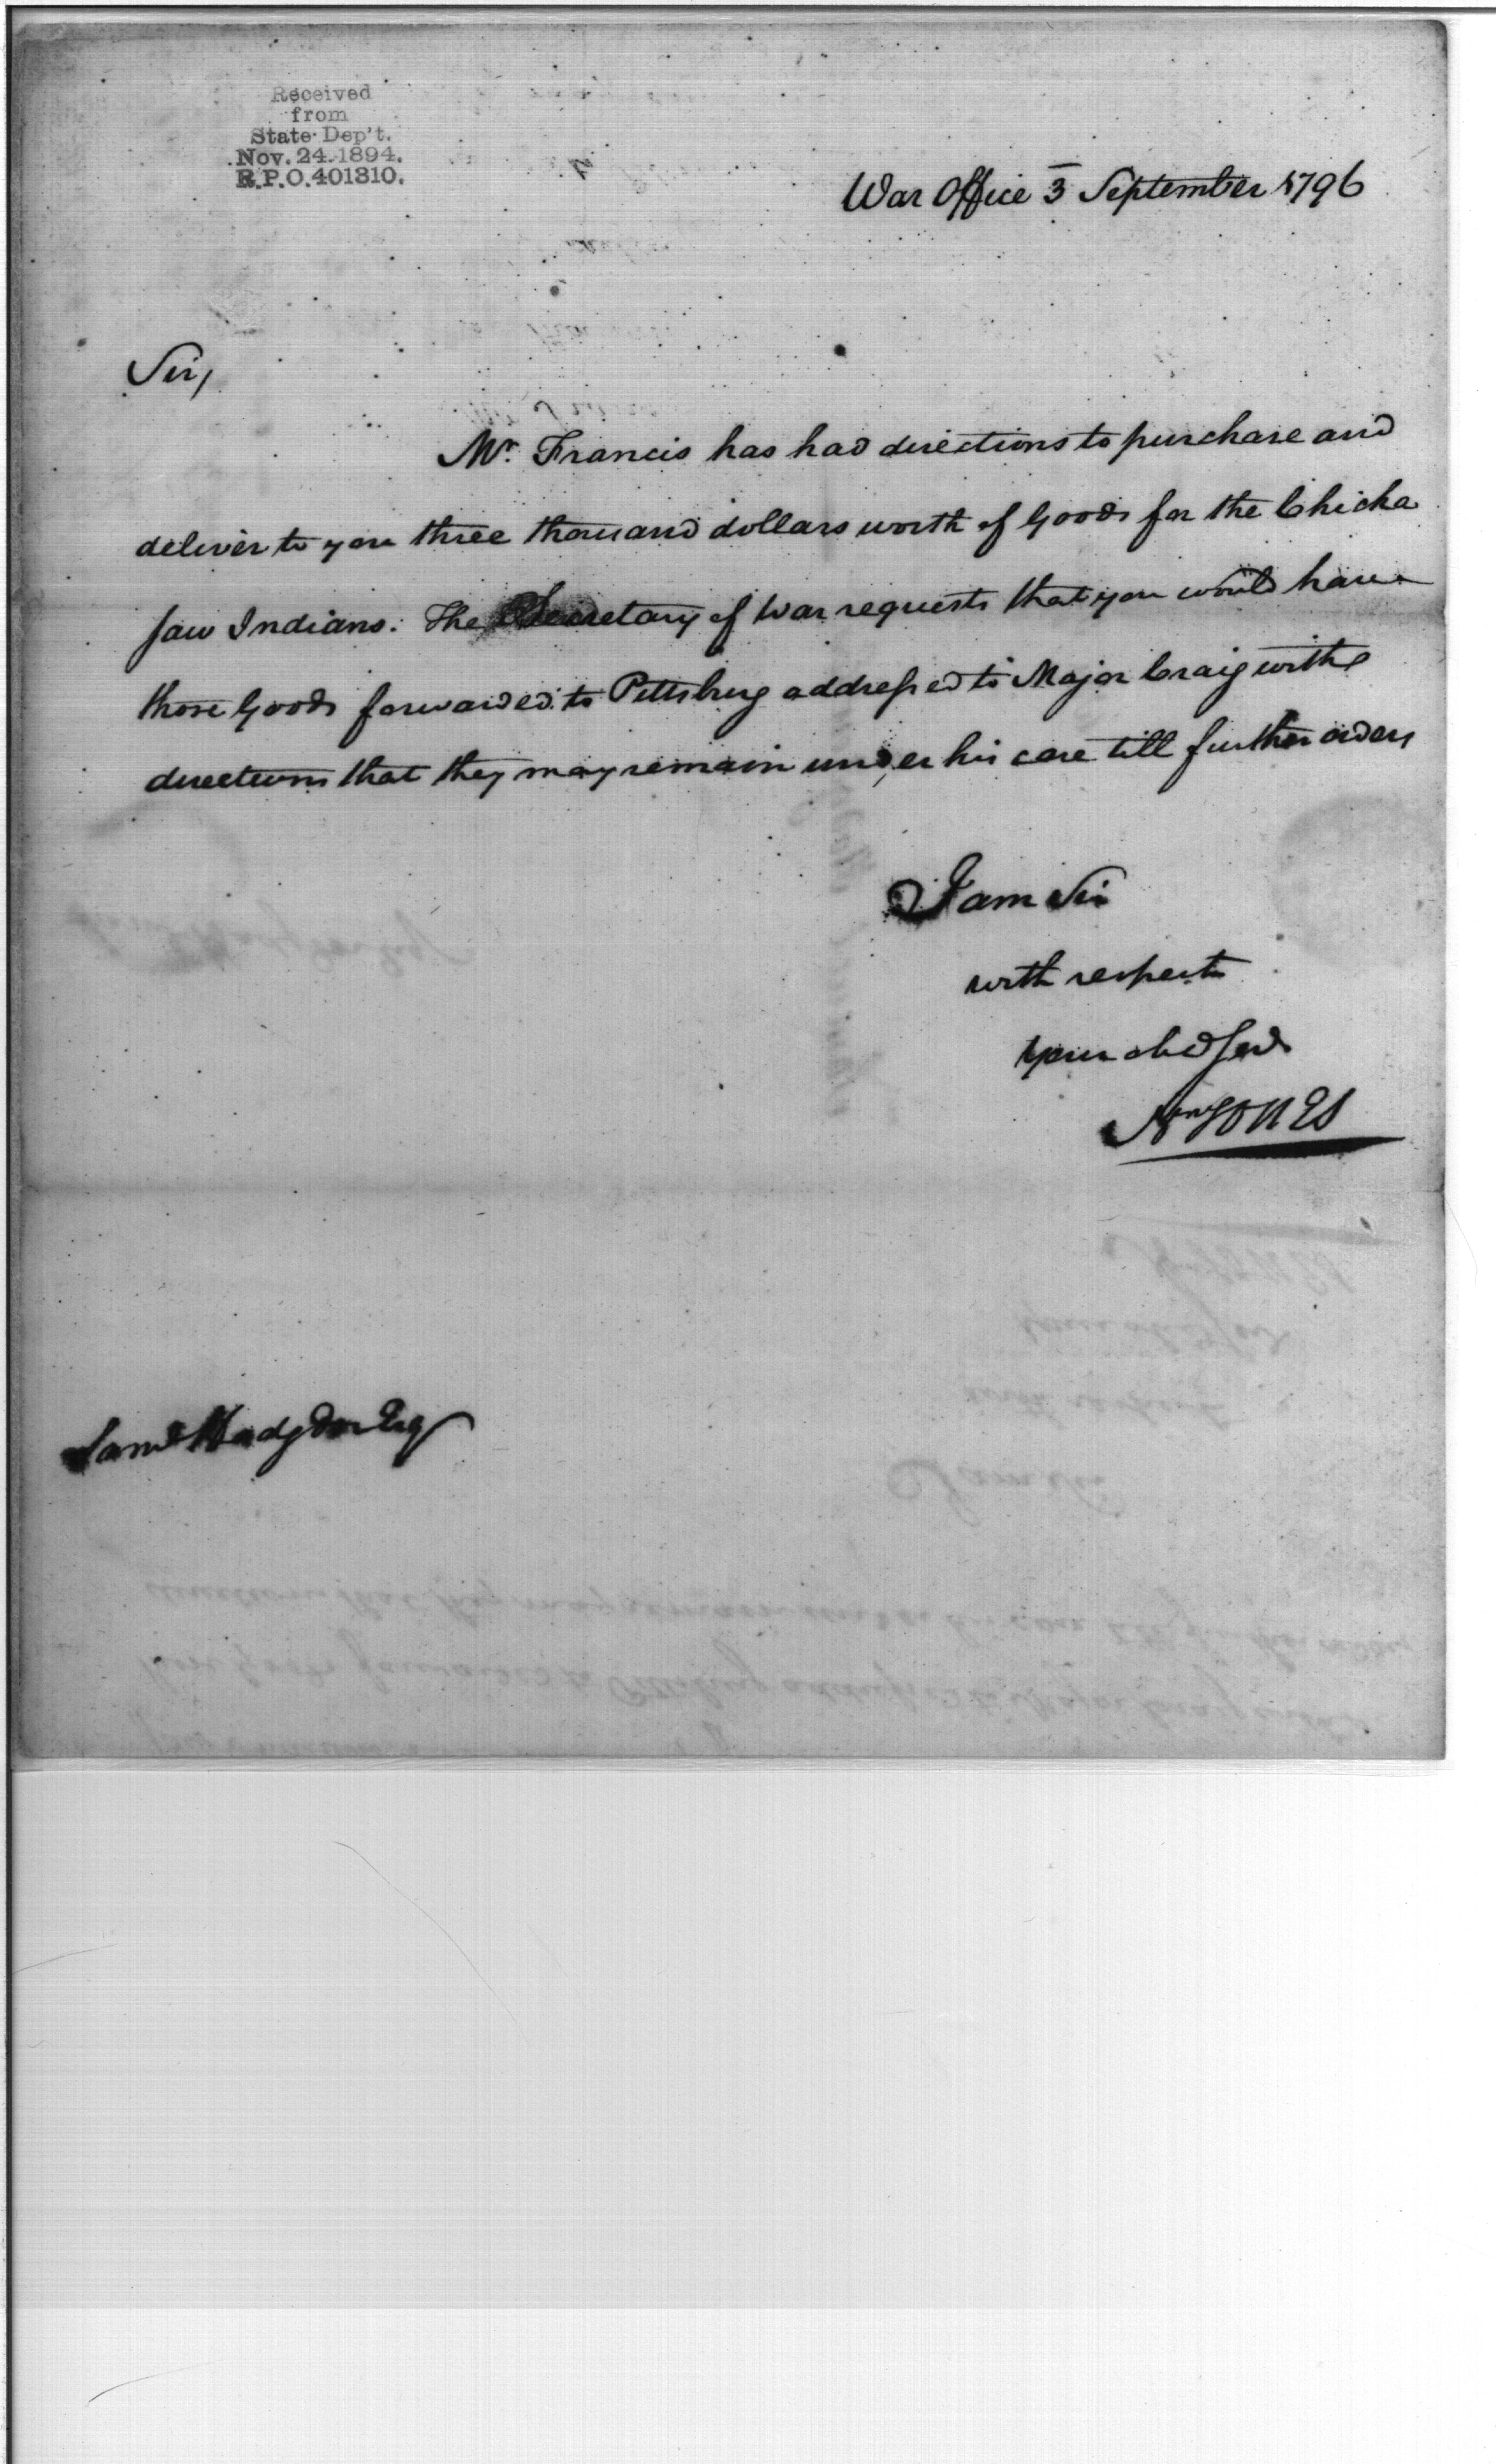 Received
from
State Dep't.
Nov. 24. 1894.
R.P.O. 401310.
War Office 3 September 1796
Sir,
Mr. Francis has had directions to purchase and
deliver to you three thousand dollars worth of Goods for the Chicka
saw Indians. The Secretary of War requests that you would have
those Goods forwarded to Pittsburg addressed to Major Craig with
directions that they may remain under his care till further orders
I am Sir
with respect
your obed Serv
Nn JONES
Saml Hodgdon Esq